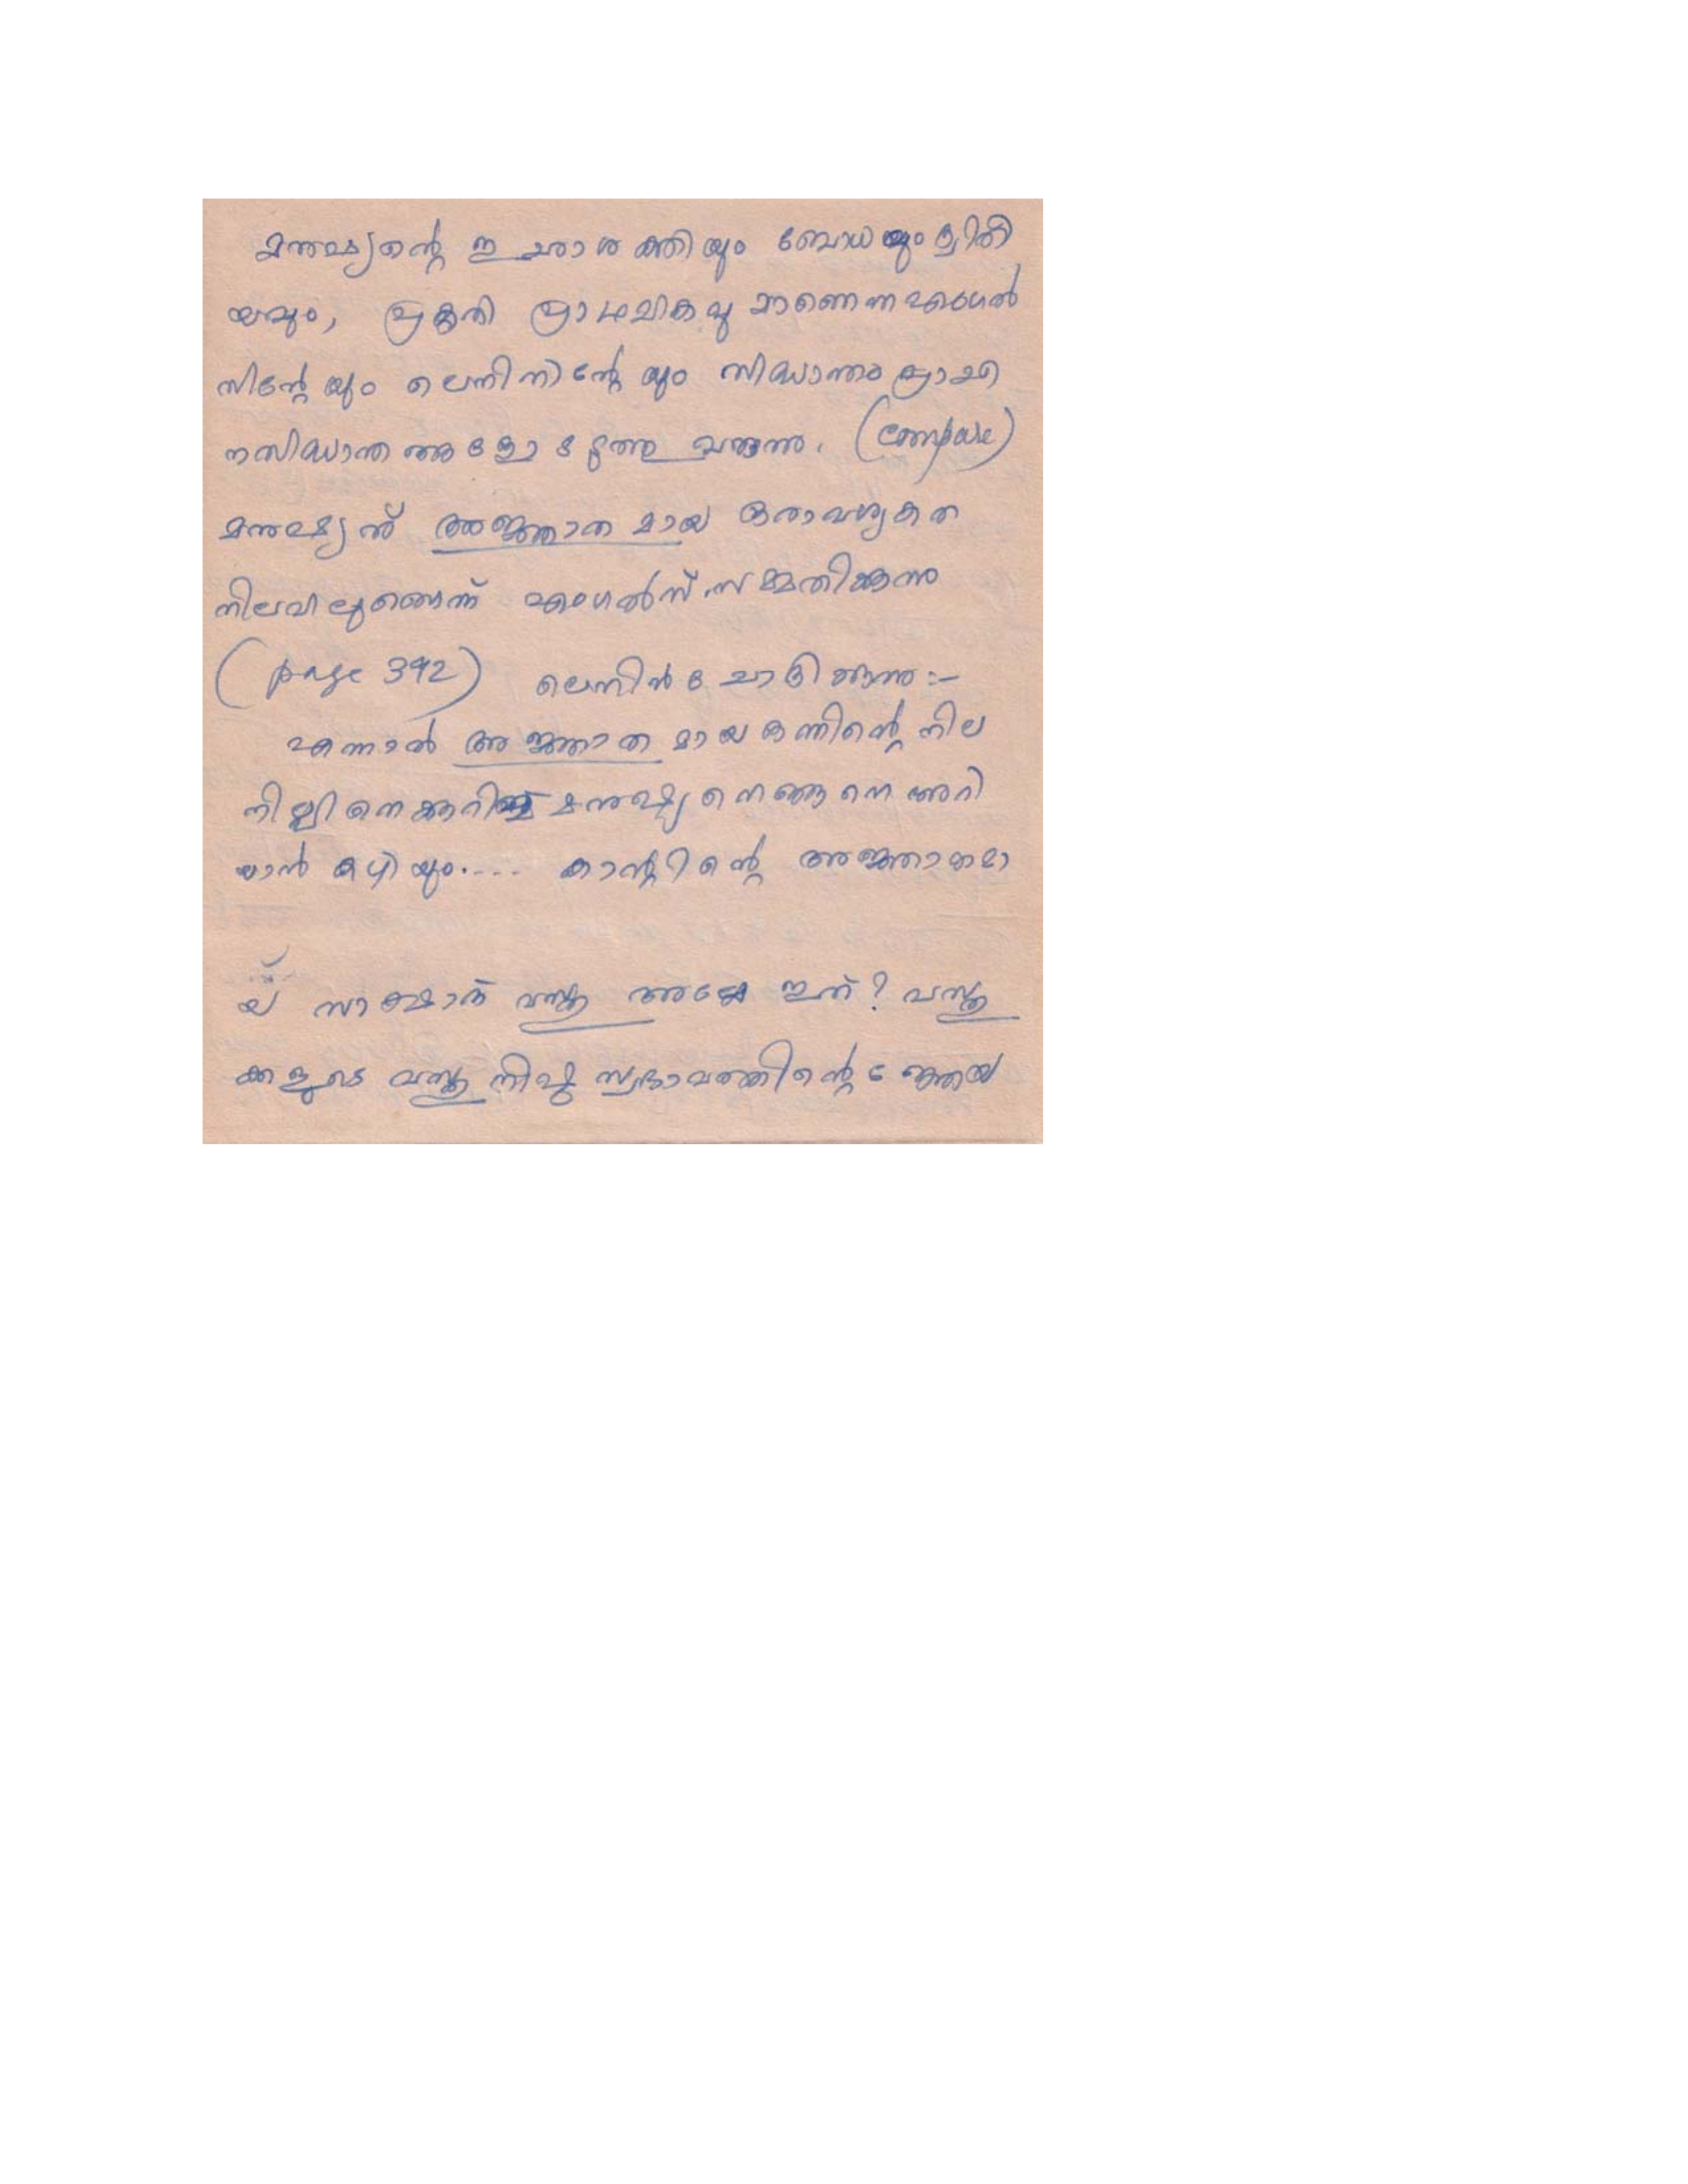 മനുഷ്യന്റെ ഇച്ഛാശക്തിയും ബോധയും ദ്വിതീ
യവും, പ്രകൃതി പ്രാഥമികവുമാണെന്ന എംഗൽ
സിന്റേയും ലെനിനിന്റേയും സിദ്ധാന്തം പ്രാചീ
നസിദ്ധാന്ത വരുന്നു. (Compare)
മനുഷ്യന് അജ്ഞാതമായ ഒരാവശ്യകത
നിലവിലുണ്ടെന്ന് എംഗൽസ് സമ്മതിക്കുന്നു
(page 392) ലെനിൻ ചോദിക്കുന്നു:-
എന്നാൽ അജ്ഞാതമായ ഒന്നിന്റെ നില
നില്പിനെക്കുറിച്ച് മനുഷ്യനെങ്ങനെ അറി
യാൻ കഴിയും.... കാന്റിന്റെ അജ്ഞാതമാ
യ് സാക്ഷാത് വസ്തു അല്ലേ ഇത്? വസ്തു
ക്കളുടെ വസ്തുനിഷ്ഠ സ്വഭാവത്തിന്റെ ജ്ഞേയ